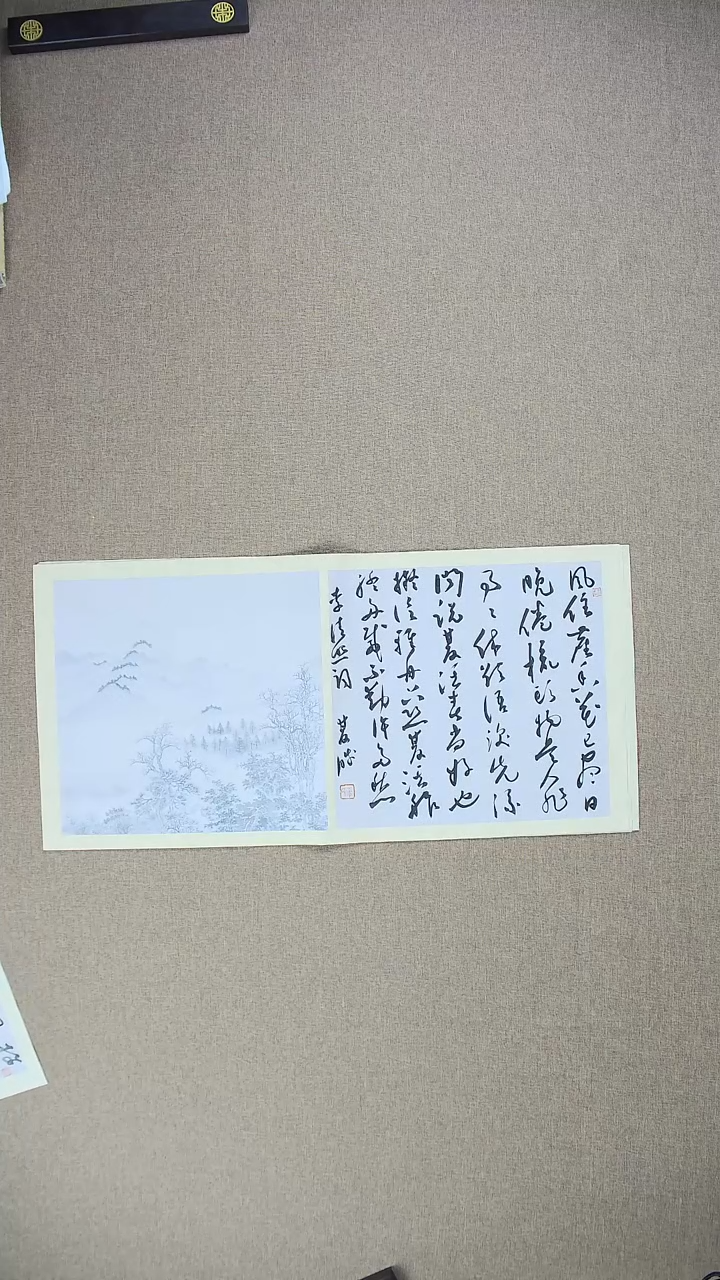 風住塵香花已盡日
晚倦梳頭物是人非
事〻休欲語淚先流
聞說雙溪春尚好也
擬泛輕舟只恐雙溪舴
艋舟載不動許多愁
李清照詞